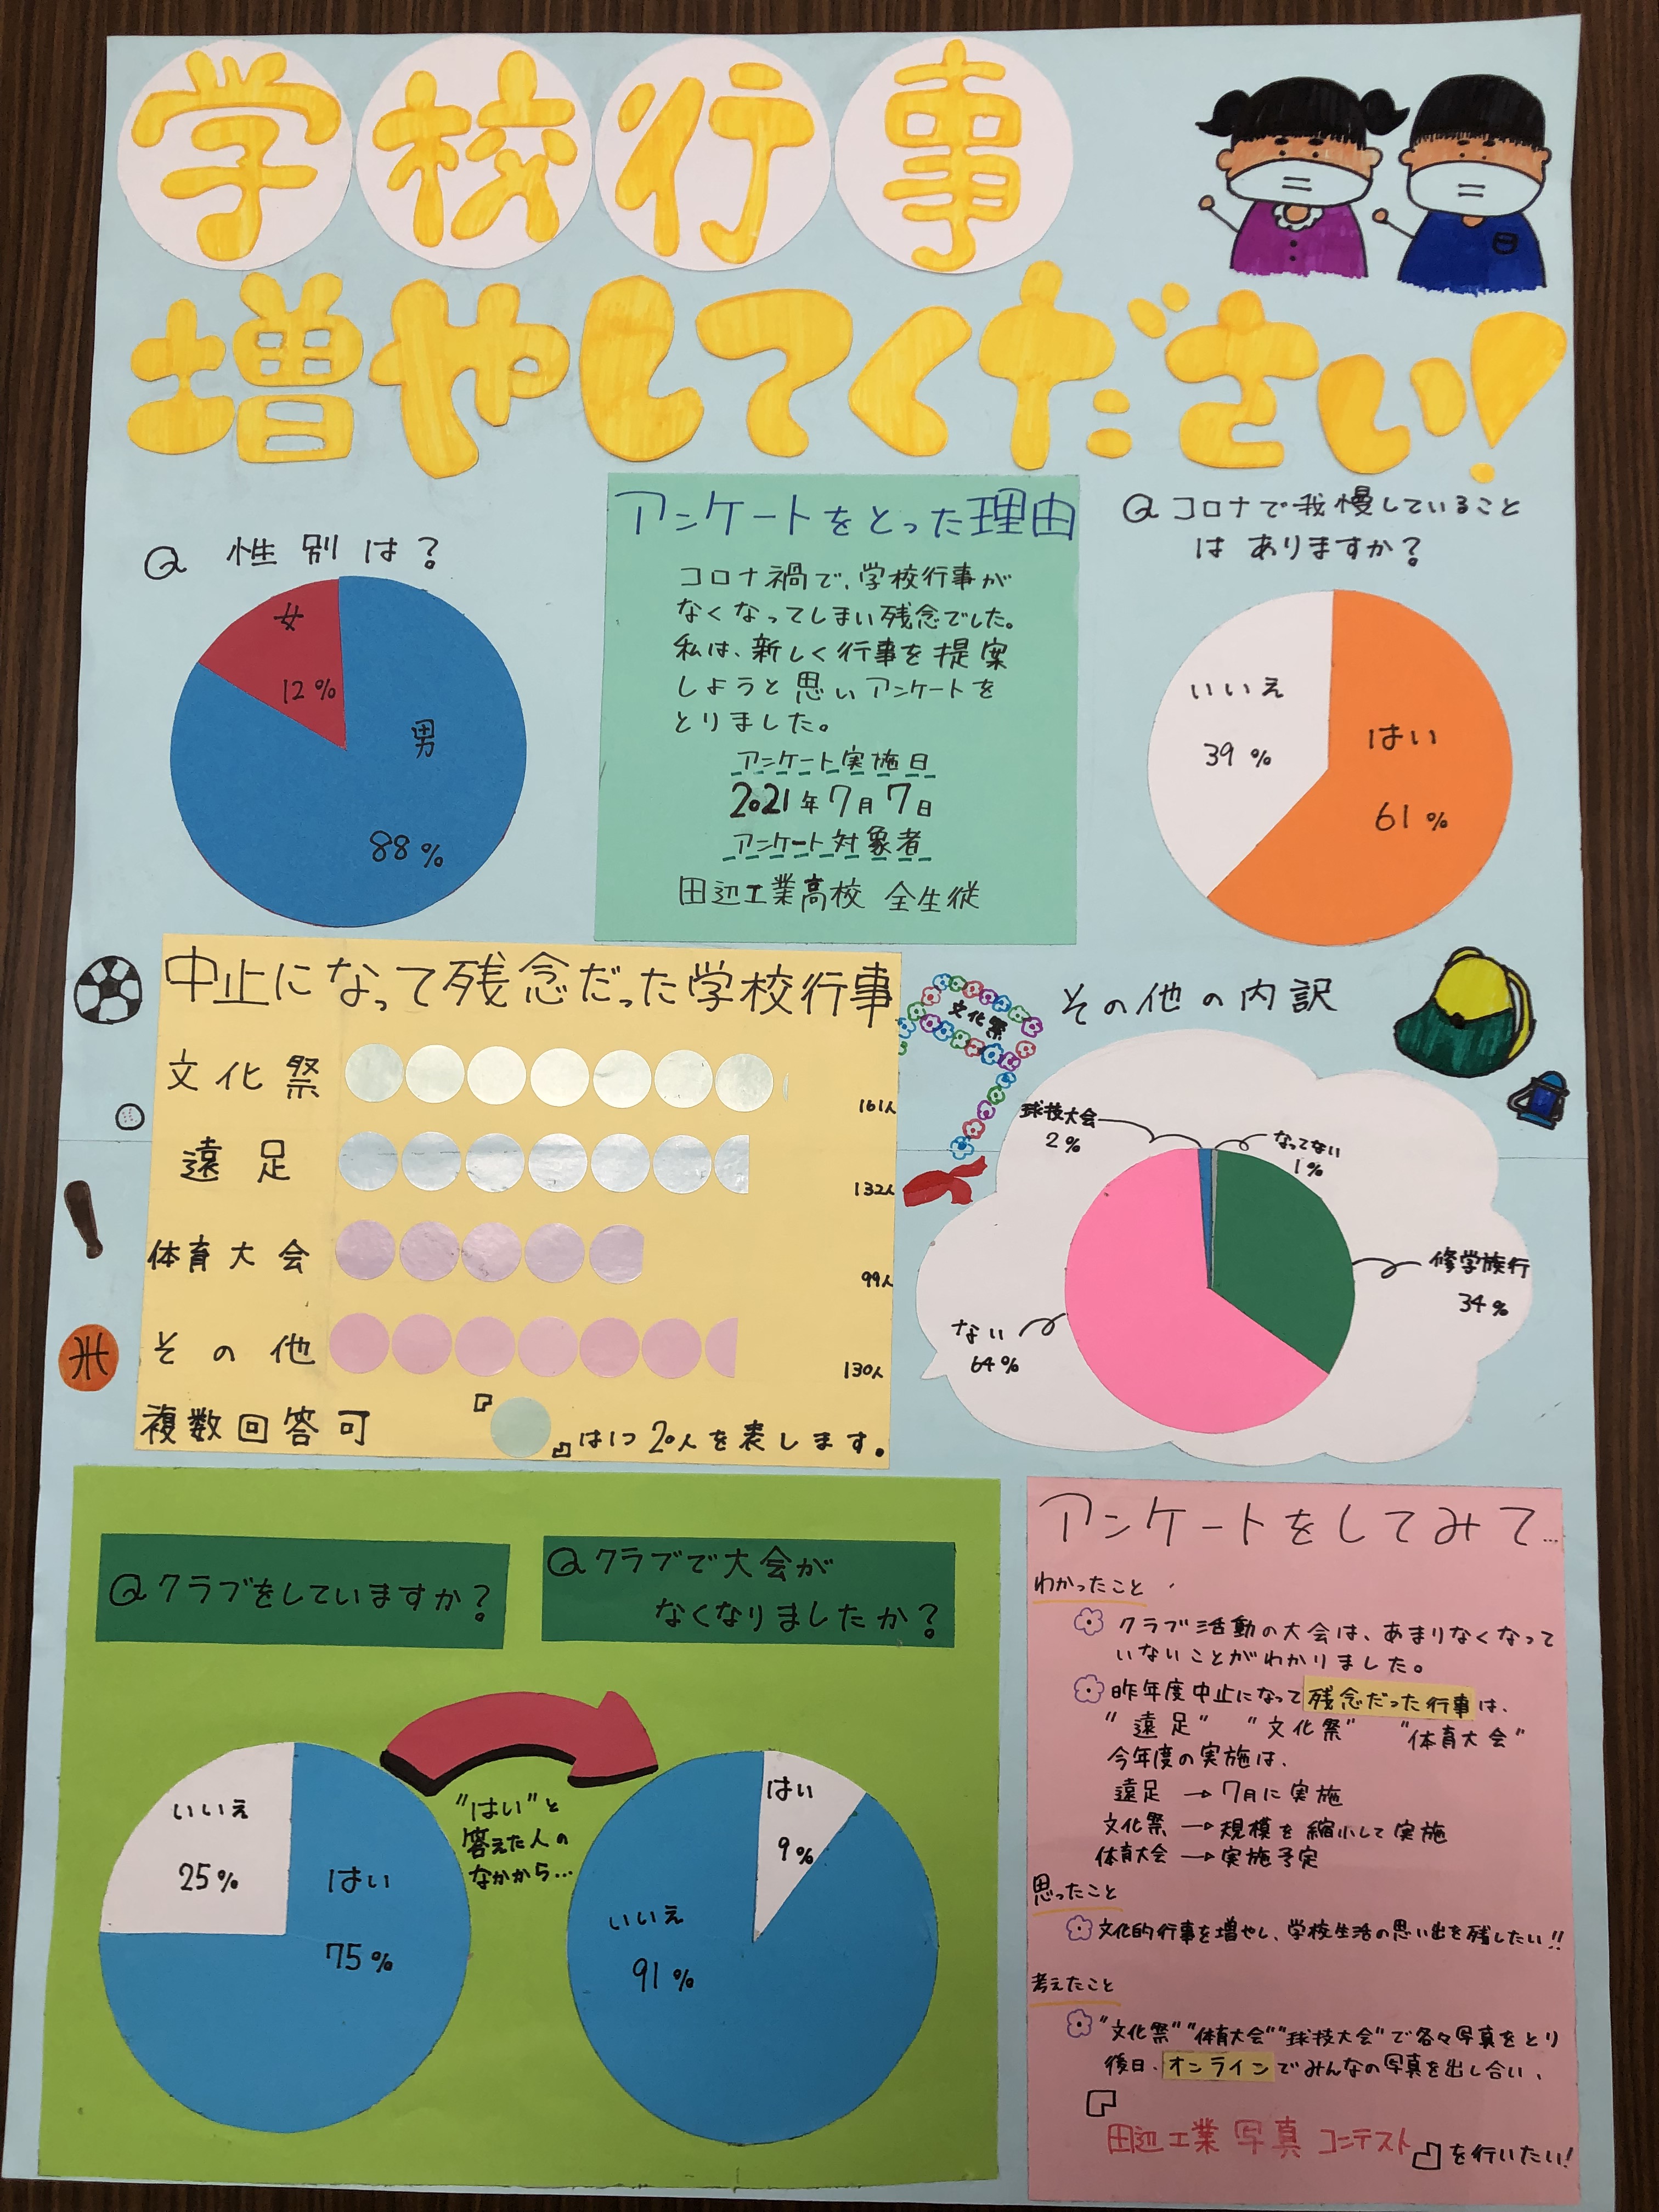 学校行事
増やしてください!
Q 性別は?
女
12%
男
88%
アンケートをとった理由
コロナ禍で、学校行事が
なくなってしまい残念でした。
私は、新しく行事を提案
しようと思いアンケートを
とりました。
アンケート実施日
2021年7月7日
アンケート対象者
田辺工業高校 全生徒
Q コロナで我慢していること
はありますか?
いいえ
39%
はい
61%
中止になって残念だった学校行事
文化祭
161人
遠足
132人
体育大会
99人
その他
130人
複数回答可
『 』は1つ20人を表します。
文化祭
その他の内訳
球技大会
2%
なってない
1%
修学旅行
34%
ない
64%
Q クラブをしていますか?
Q クラブで大会が
なくなりましたか?
いいえ
25%
はい
75%
"はい"と
答えた人の
なかから…
はい
9%
いいえ
91%
アンケートをしてみて…
わかったこと
クラブ活動の大会は、あまりなくなって
いないことがわかりました。
昨年度中止になって残念だった行事は、
"遠足" "文化祭" "体育大会"
今年度の実施は、
遠足 → 7月に実施
文化祭 → 規模を縮小して実施
体育大会 → 実施予定
思ったこと
文化的行事を増やし、学校生活の思い出を残したい!!
考えたこと
"文化祭""体育大会""球技大会"で各々写真をとり
後日、オンラインでみんなの写真を出し合い、
『田辺工業 写真 コンテスト』を行いたい!